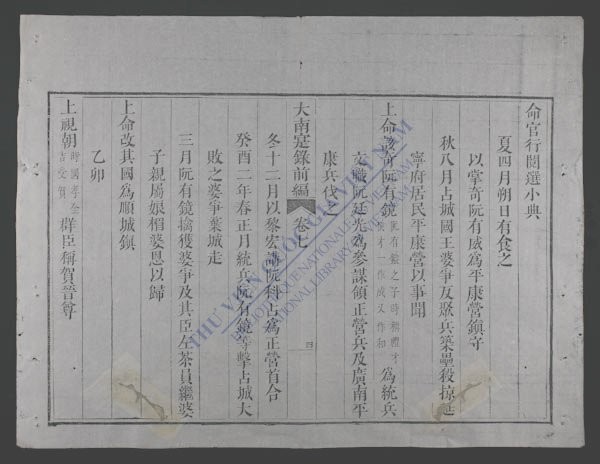 命官行閱選小典
夏四月朔日有食之
以掌奇阮有威為平康營鎮守
秋八月占城國王婆爭反聚兵築壘殺掠延
寧府居民平康營以事聞
上命該奇阮有鏡阮有鎰之子時才一作成又作和為統兵
文職阮廷光為參謀領正營兵及廣南平
康兵伐之
大南寔錄前編 卷七
冬十二月以黎宏講阮科占為正營首合
癸酉二年春正月統兵阮有鏡等擊占城大
敗之婆爭棄城走
三月阮有鏡擒獲婆爭及其臣左茶員繼婆
子親屬娘楣婆恩以歸
上命改其國為順城鎮
乙卯
上視朝時國孝全吉受賀群臣稱賀晉尊
THƯ VIỆN QUỐC GIA VIỆT NAM
BIBLIOTHEQUE NATIONALE DU VIETNAM
NATIONAL LIBRARY OF VIETNAM